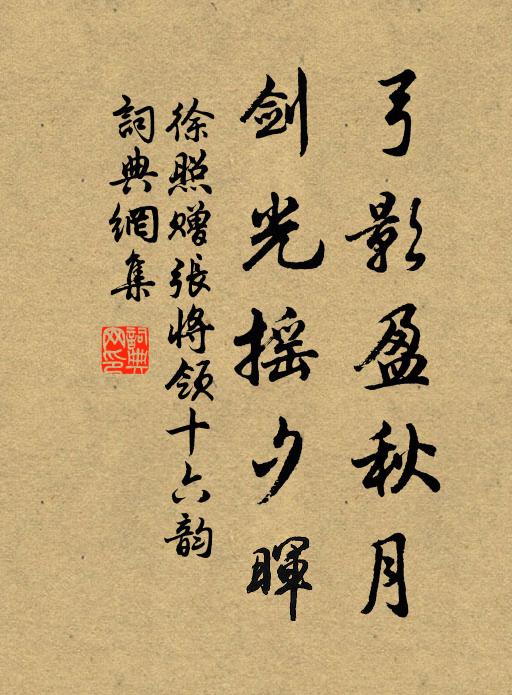 弓影盈秋月
剑光摇夕暉
徐照赠張将领十六韵
詞典網集
詞典网印